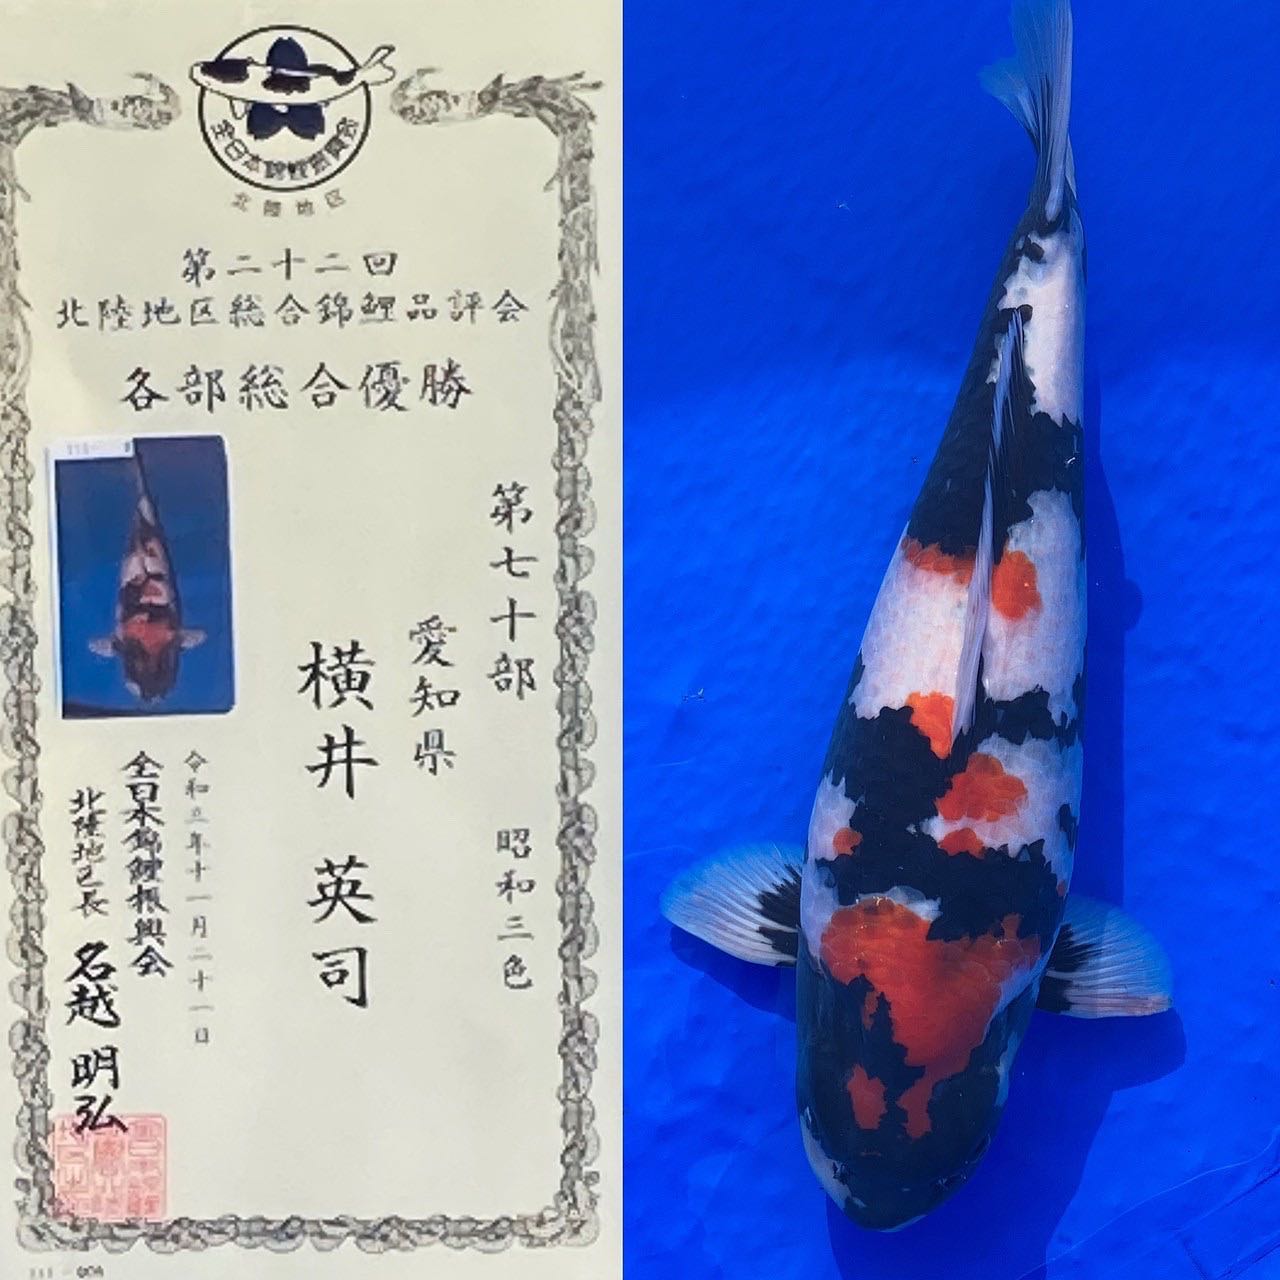 全日本錦鯉振興会
北陸地区
第二十二回
北陸地区総合錦鯉品評会
各部総合優勝
第七十部 昭和三色
愛知県
横井英司
令和三年十一月二十一日
全日本錦鯉振興会
北陸地区長 名越明弘